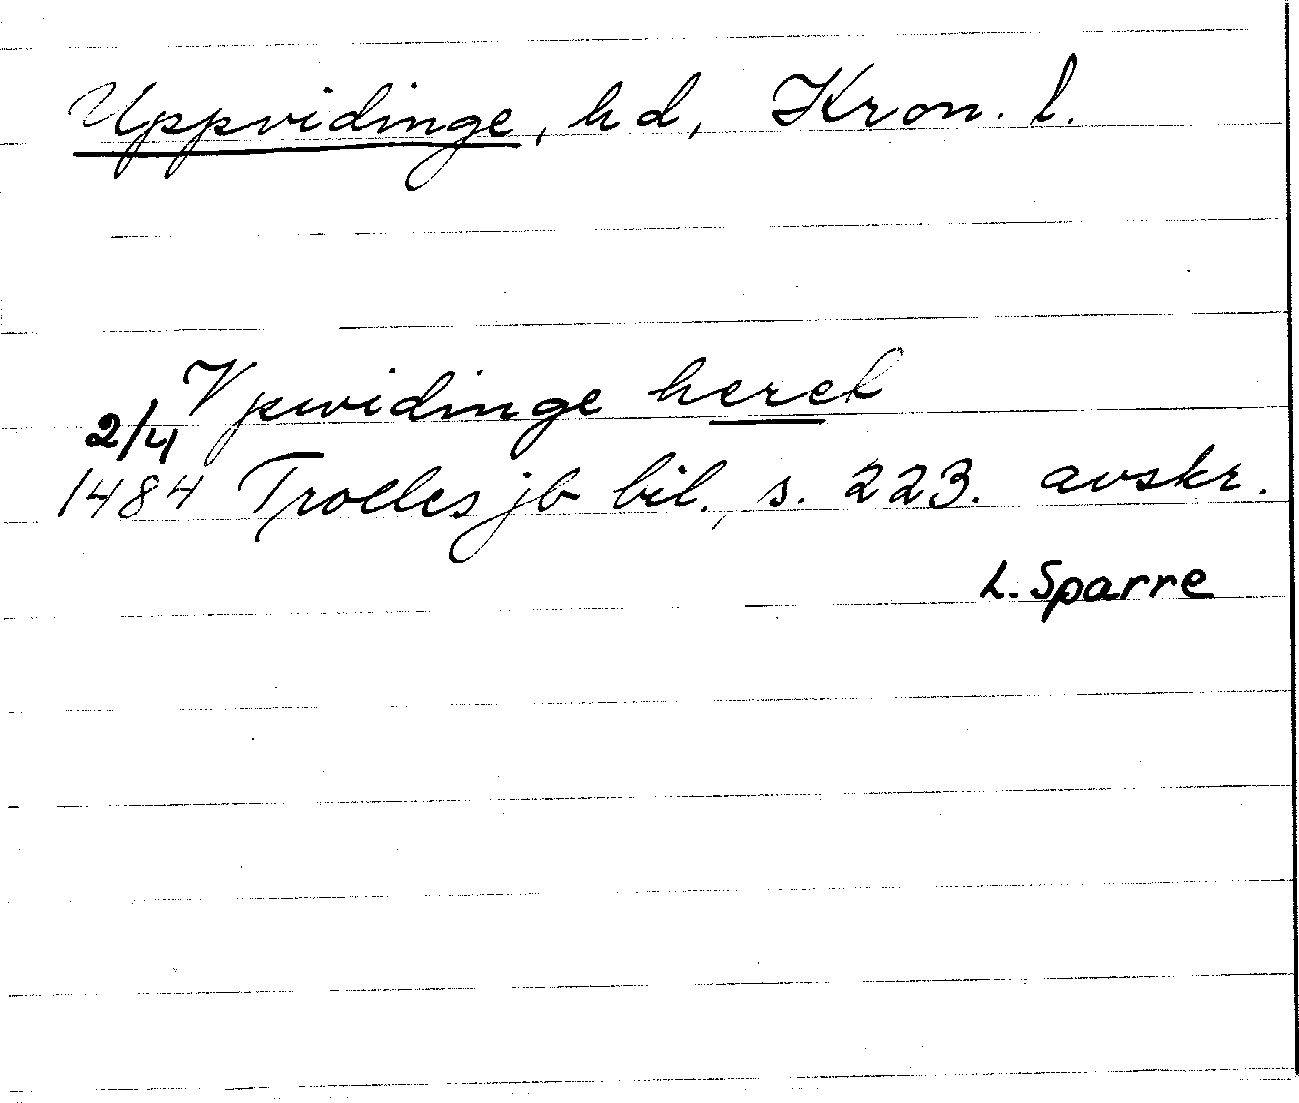 Uppvidinge, hd, Kron. l.
Vpwidinge hered
2/4
1484 Trolles jb bil., s. 223. avskr.
L. Sparre